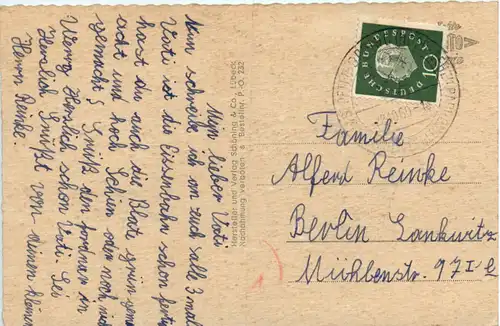 Mein lieber Vati
Nun schreibe ich an euch alle 3 mal
Vati ist die Eissenbahn schon fertig
hast du auch die Blate grün gema
acht und noch Schien oder noch nich
gemacht? Grüß den
Werry Herzlich schon Vati. Sei
Herzlich Grüßt von deinen kleinen
Herrn Reinke.
Hersteller und Verlag Schöning & Co., Lübeck
Nachahmung verboten • Bestellnr. P.-O. 232
DEUTSCHE BUNDESPOST
10
Familie
Alfred Reinke
Berlin Lankwitz
Mühlbenstr. 97 I l